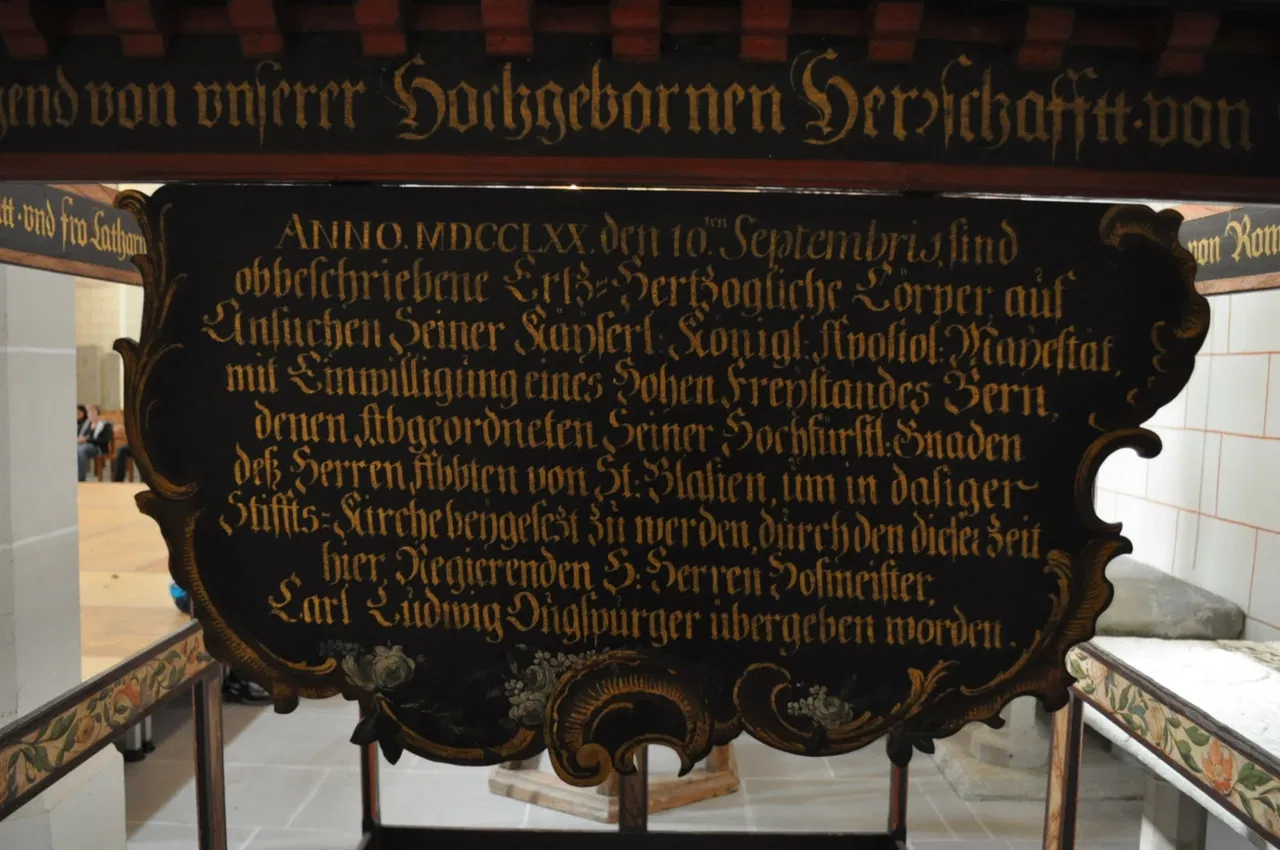 end von vnserer Hochgebornen Herrschafftt · von
tt · vnd fro Kathar
von Rom
ANNO. MDCCLXX. den 10.ten Septembris, sind
obbeschriebene Ertz=Hertzogliche Cörper, auf
Ansuchen Seiner Käyserl: Königl: Apostol: Mayestät,
mit Einwilligung eines Hohen Freystandes Bern,
denen Abgeordneten Seiner Hochfürstl: Gnaden
deß Herren Abbten von St: Blasien, um in dasiger
Stiffts=Kirche beygesezt zu werden, durch den dieser Zeit
hier Regierenden H: Herren Hofmeister,
Carl Ludwig Ougspurger übergeben worden.